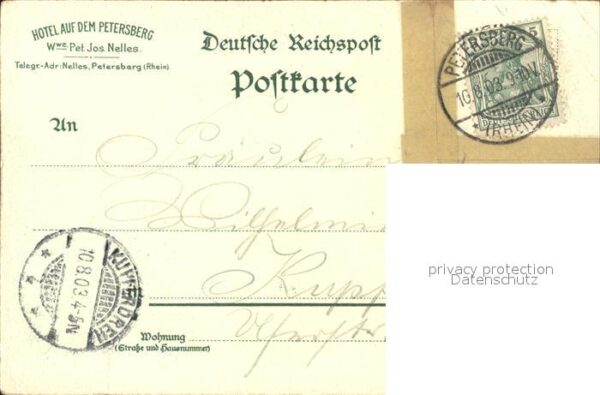 HOTEL AUF DEM PETERSBERG
Wwe. Pet. Jos. Nelles.
Telegr.-Adr: Nelles, Petersberg (Rhein).
Deutsche Reichspost
Postkarte
PETERSBERG
10.8.03. 9-10V.
* (RHEIN)
5
An
Fräulein
Wilhelmi
Kupf
privacy protection
Datenschutz
10.8.03.4-5N
Wohnung
(Straße und Hausnummer)